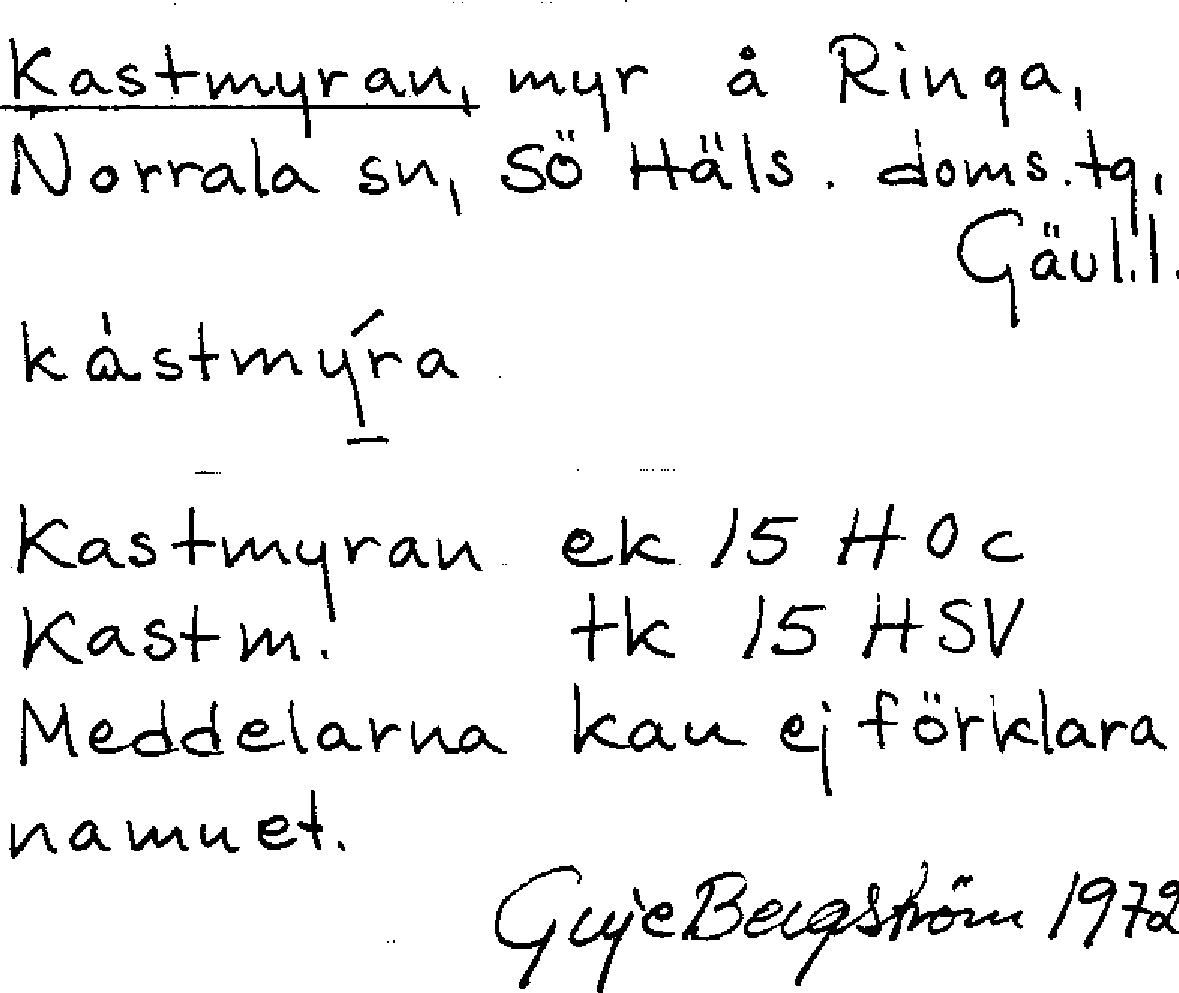 Kastmyran, myr å Ringa,
Norrala sn, Sö Häls. doms.tg,
Gävl.l.
kàstmýra
Kastmyran ek 15 H 0 c
Kastm. tk 15 H SV
Meddelarna kan ej förklara
namnet.
Bergström 1972